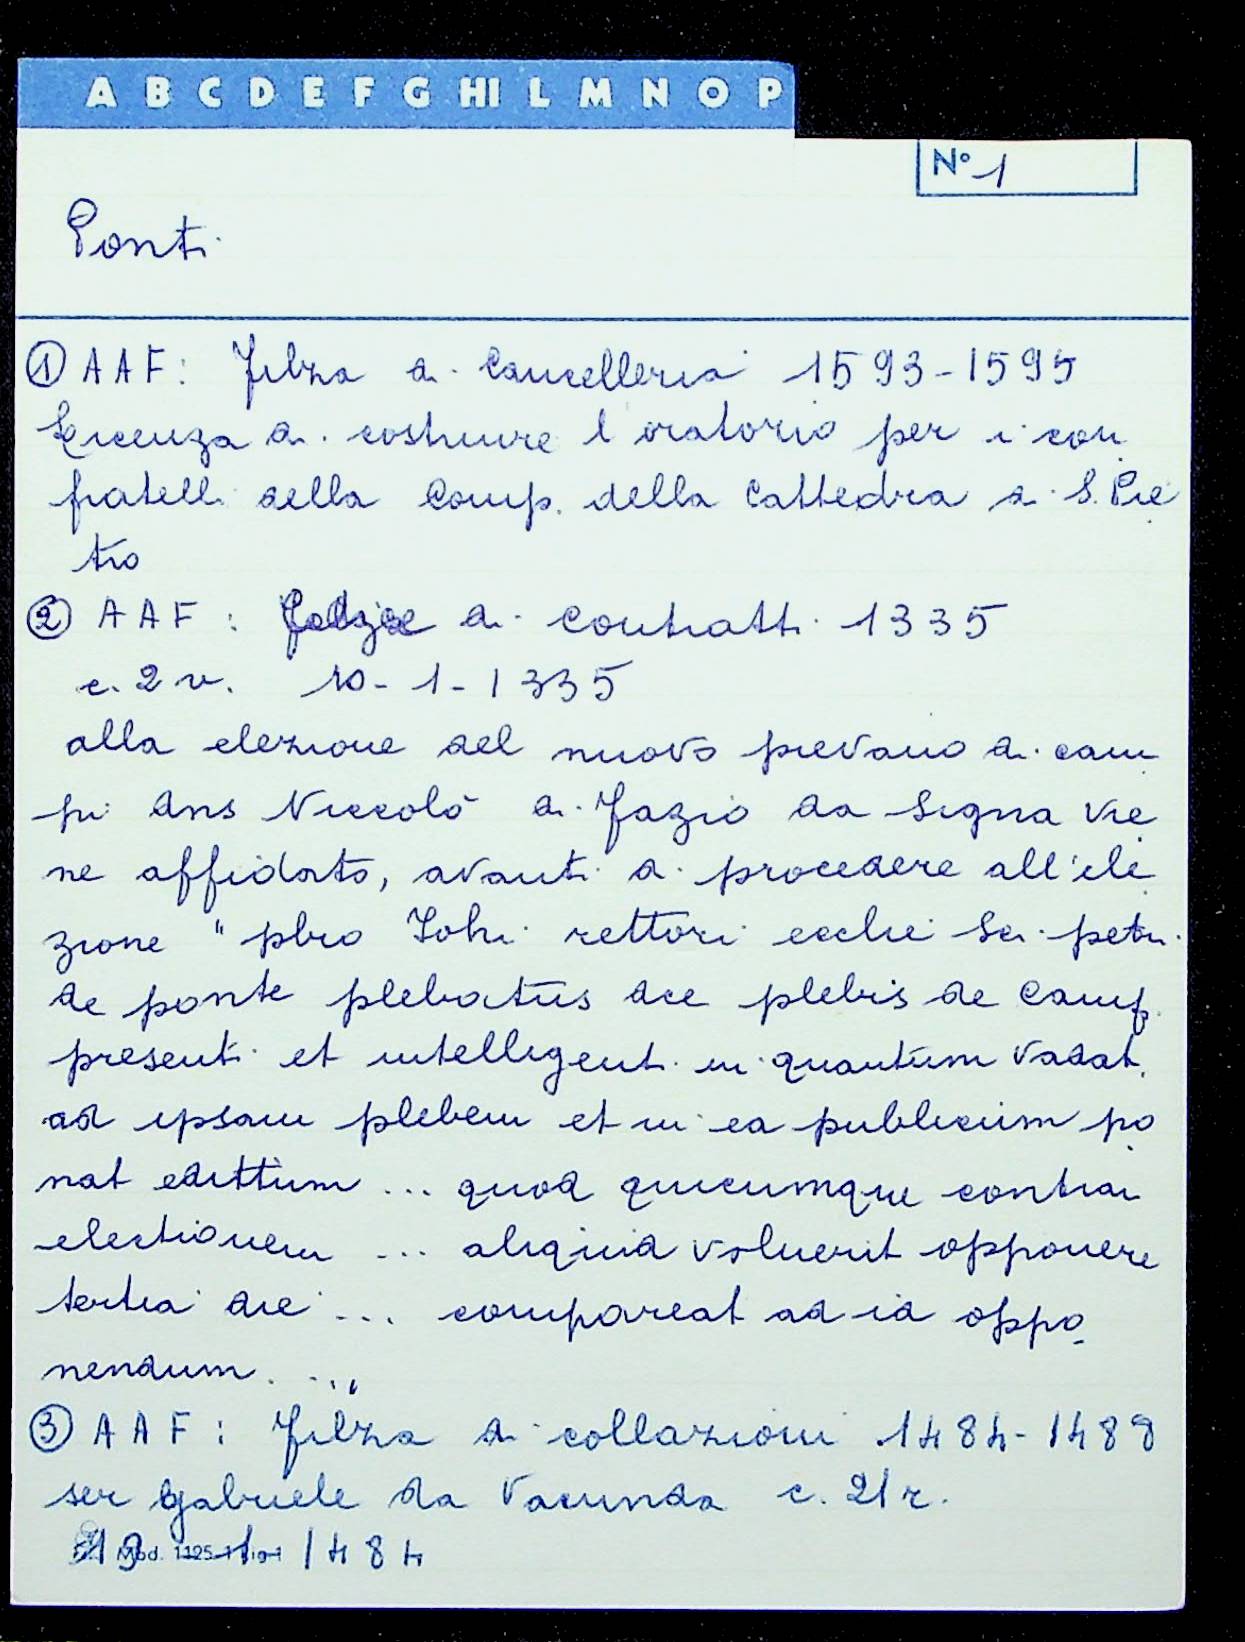 A B C D E F G HI L M N O P
N° 1
Ponti
① AAF: Filza di Cancelleria 1593-1595
Licenza di costruire l'oratorio per i con
fratelli della Comp. della Cattedra di S. Pie
tro
② AAF: di contratti 1335
c. 2 v. 10-1-1335
alla elezione del nuovo pievano di Cam
pi dns Niccolò di Fazio da Signa vie
ne affidato, avanti di procedere all'ele
zione "pbro Iohi rettori ecclie Sci petri
de ponte plebatus dce plebis de Camp.
presenti et intelligenti in quantum vadat
ad ipsam plebem et in ea publicum po
nat edittum ... quod quicumque contra
electionem ... aliquid voluerit opponere
tertia die ... compareat ad id oppo
nendum ..."
③ AAF: Filza di collazioni 1484-1489
ser Gabriele da Vacunda c. 21 r.
1484